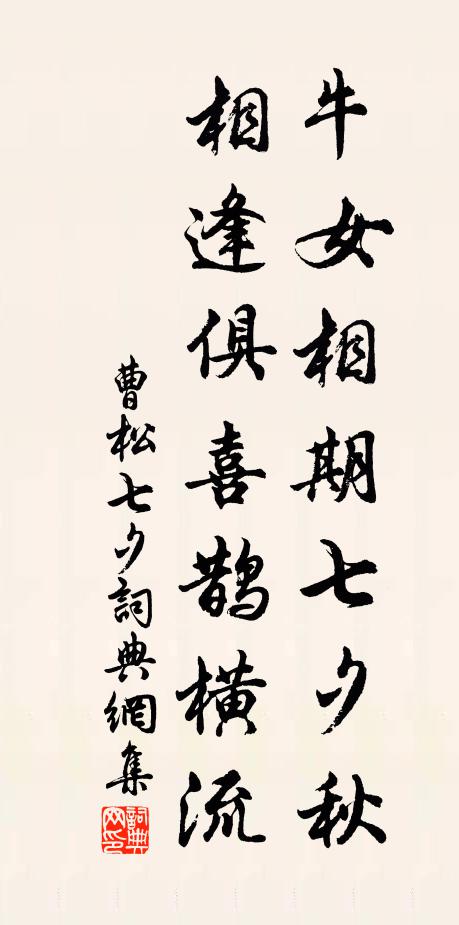 牛女相期七夕秋
相逢俱喜鵲橫流
曹松七夕詞典網集
詞典網印